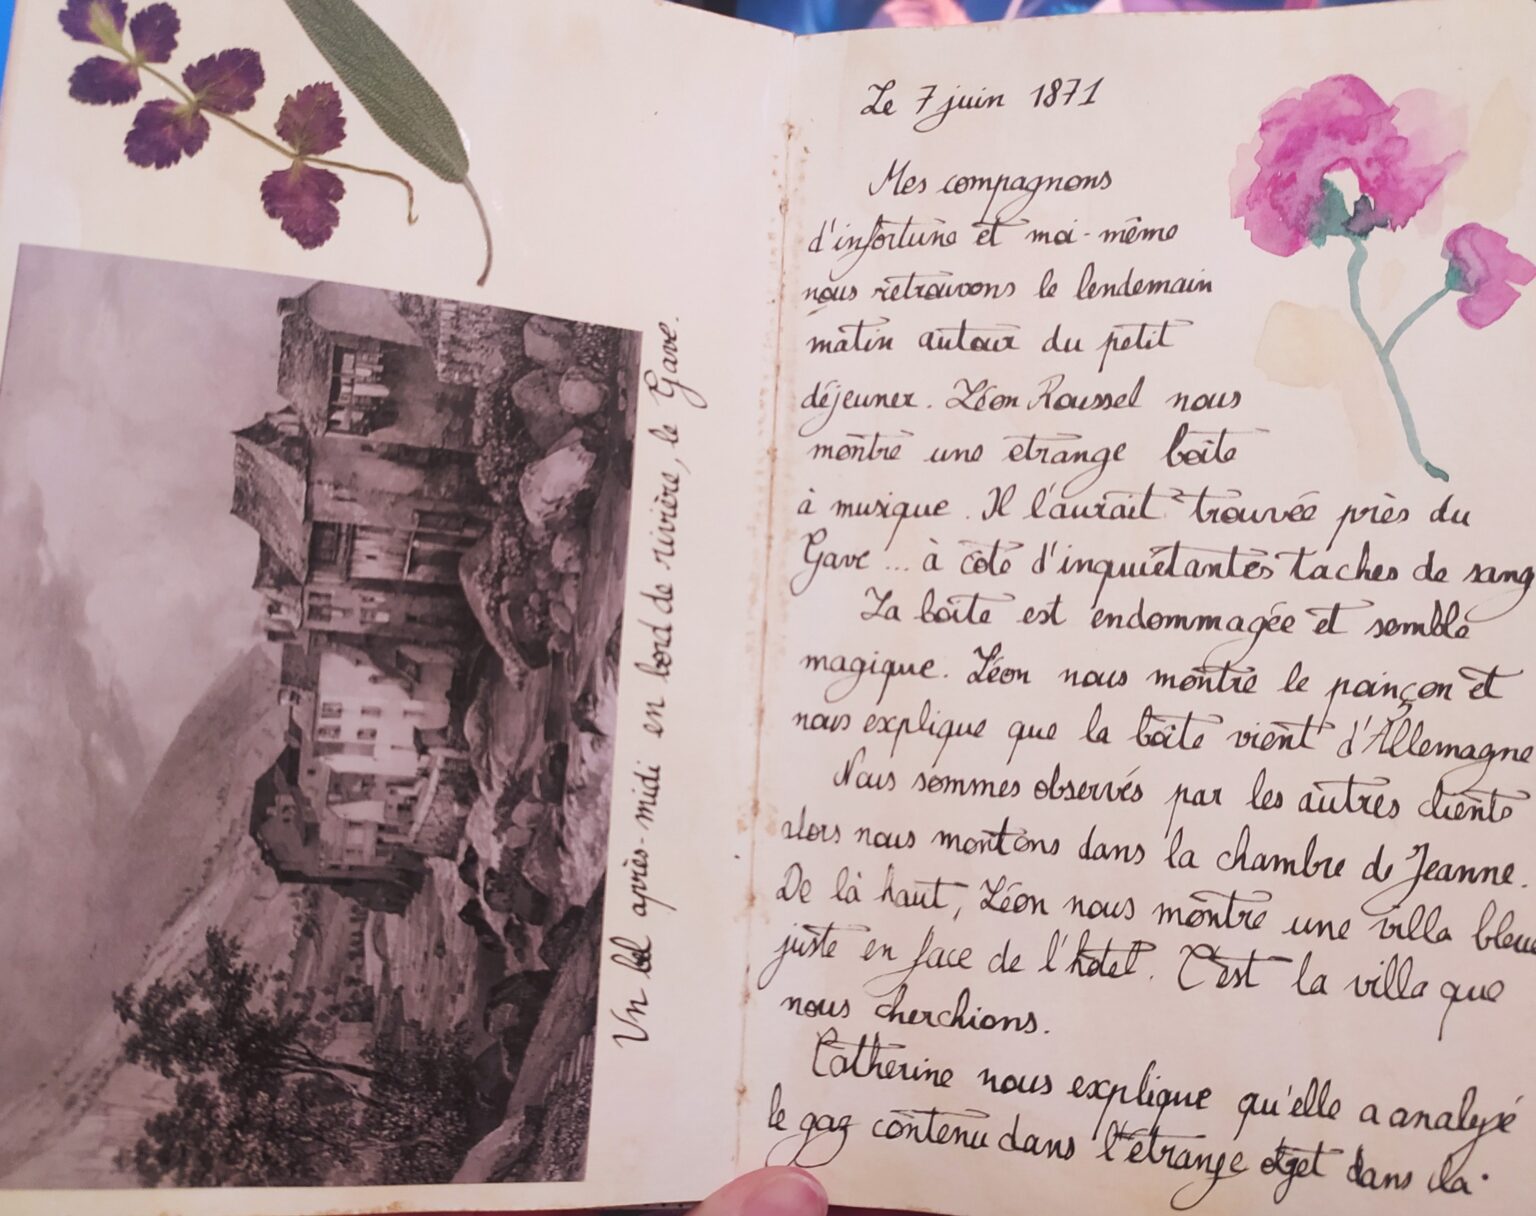 Un bel après-midi en bord de rivière, le Gave.
Le 7 juin 1871
Mes compagnons
d'infortune et moi-même
nous retrouvons le lendemain
matin autour du petit
déjeuner. Léon Roussel nous
montre une étrange boîte
à musique. Il l'aurait trouvée près du
Gave... à côté d'inquiétantes taches de sang
La boîte est endommagée et semble
magique. Léon nous montre le poinçon et
nous explique que la boîte vient d'Allemagne
Nous sommes observés par les autres clients
alors nous montons dans la chambre de Jeanne.
De là haut, Léon nous montre une villa bleue
juste en face de l'hôtel. C'est la villa que
nous cherchions.
Catherine nous explique qu'elle a analysé
le gaz contenu dans l'étrange objet dans la